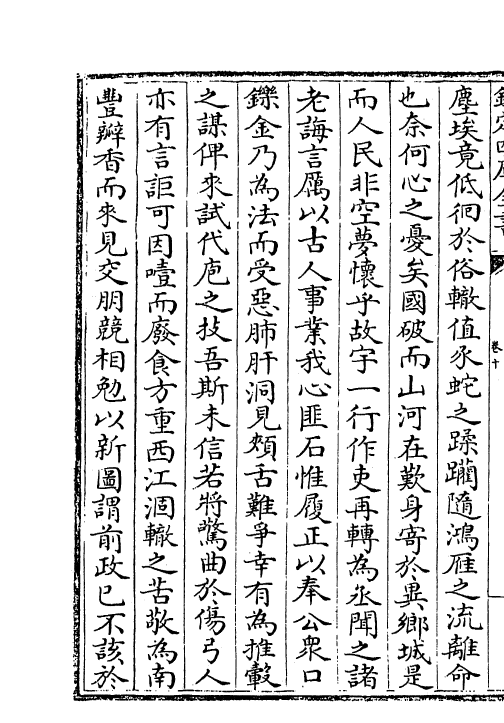 塵埃竟低徊於俗轍值豕蛇之蹂躪隨鴻雁之流離命
也奈何心之憂矣國破而山河在歎身寄於異鄉城是
而人民非空夢懷乎故宇一行作吏再轉為丞聞之諸
老誨言厲以古人事業我心匪石惟履正以奉公衆口
鑠金乃為法而受惡肺肝洞見頰舌難爭幸有為推轂
之謀俾來試代庖之技吾斯未信若將驚曲於傷弓人
亦有言詎可因噎而廢食方重西江涸轍之苦敬為南
豐瓣香而來見交朋競相勉以新圖謂前政已不該於
卷十